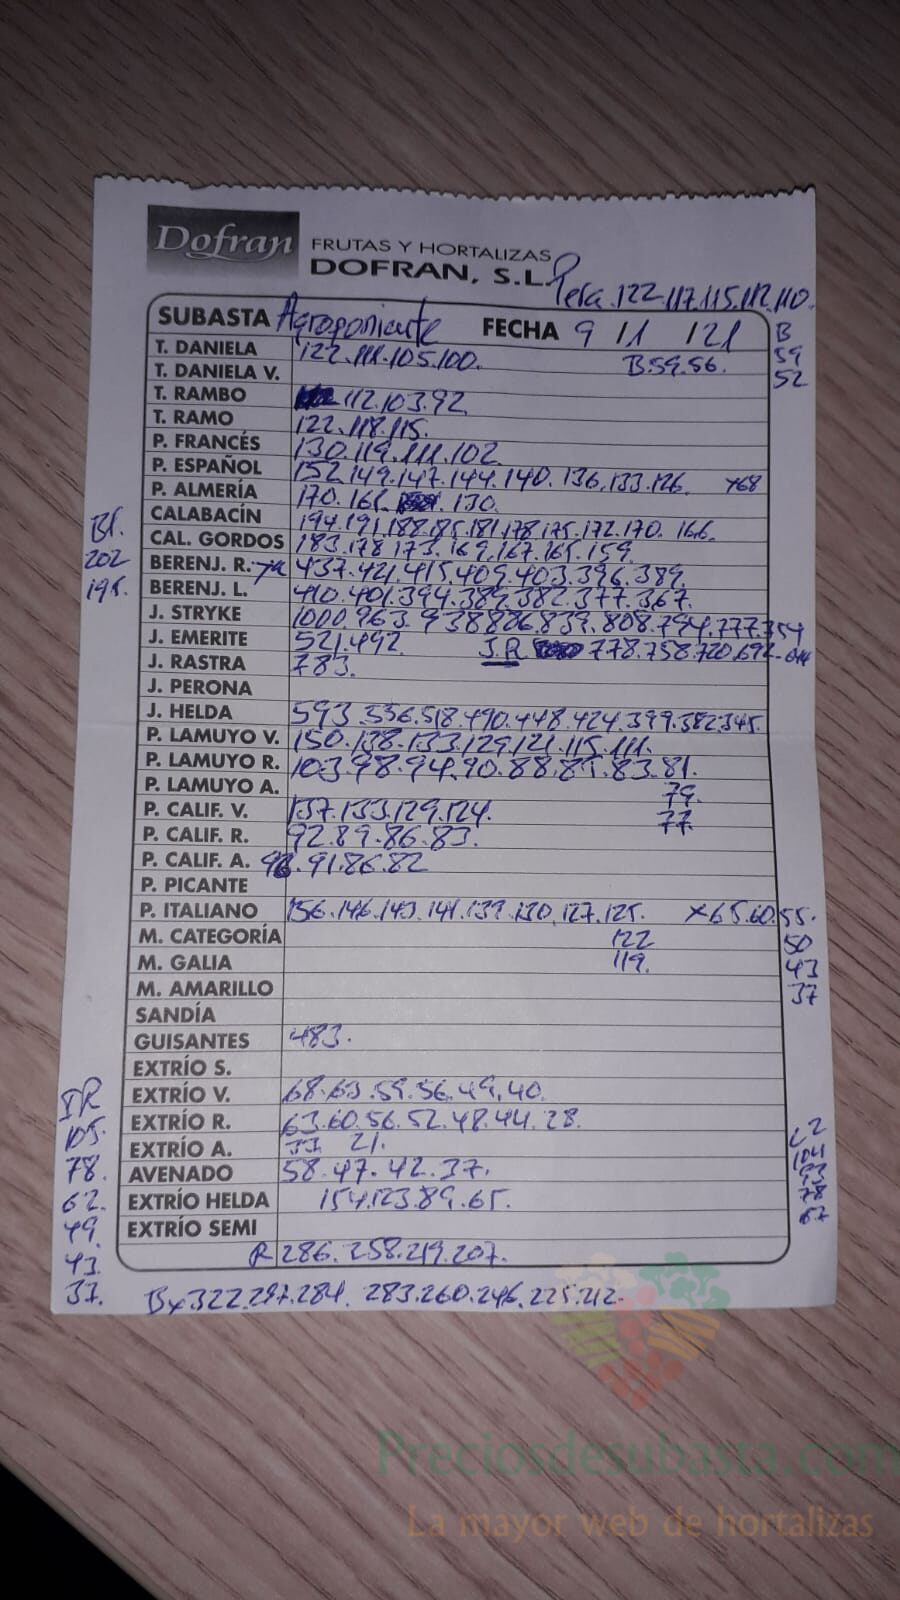 Dofran FRUTAS Y HORTALIZAS
DOFRAN, S.L.
Pera.122.117.115.112.110.
SUBASTA Agroponiente FECHA 9 /11 /21 B
T. DANIELA 122.111.105.100. B.59.56. 59
T. DANIELA V. 52
T. RAMBO 112.103.92
T. RAMO 122.118.115.
P. FRANCÉS 130.119.111.102
P. ESPAÑOL 152.149.147.144.140.136.133.126. x68
P. ALMERÍA 170.161. 130.
CALABACÍN 194.191.188.185.181.178.175.172.170.166.
CAL. GORDOS 183.178.173.169.167.165.159.
Bf.
202
195.
BERENJ. R. 437.421.415.409.403.396.389.
BERENJ. L. 410.401.394.389.382.377.367.
J. STRYKE 1000.963.938.886.839.808.794.777.754
J. EMERITE 521.492. J.R 778.758.720.692.
J. RASTRA 783.
J. PERONA
J. HELDA 593.556.518.490.448.424.399.382.345.
P. LAMUYO V. 150.138.133.129.121.115.111.
P. LAMUYO R. 103.98.94.90.88.85.83.81.
P. LAMUYO A. 79.
P. CALIF. V. 137.133.129.124. 77.
P. CALIF. R. 92.89.86.83.
P. CALIF. A. 91.86.82
P. PICANTE
P. ITALIANO 156.146.143.141.139.130.127.125. x65.60.55.
M. CATEGORÍA 122 50
M. GALIA 119. 43
M. AMARILLO 37
SANDÍA
GUISANTES 483.
EXTRÍO S.
EXTRÍO V. 68.63.59.56.49.40.
EXTRÍO R. 63.60.56.52.48.44.28.
EXTRÍO A. 33. 21.
AVENADO 58.47.42.37.
EXTRÍO HELDA 154.123.89.65.
EXTRÍO SEMI
IR
105.
78.
62.
49.
43.
37.
104
93
78
67
R 286.258.219.207.
Bx322.297.284. 283.260.246.225.212.
Preciosdesubasta.com
La mayor web de hortalizas